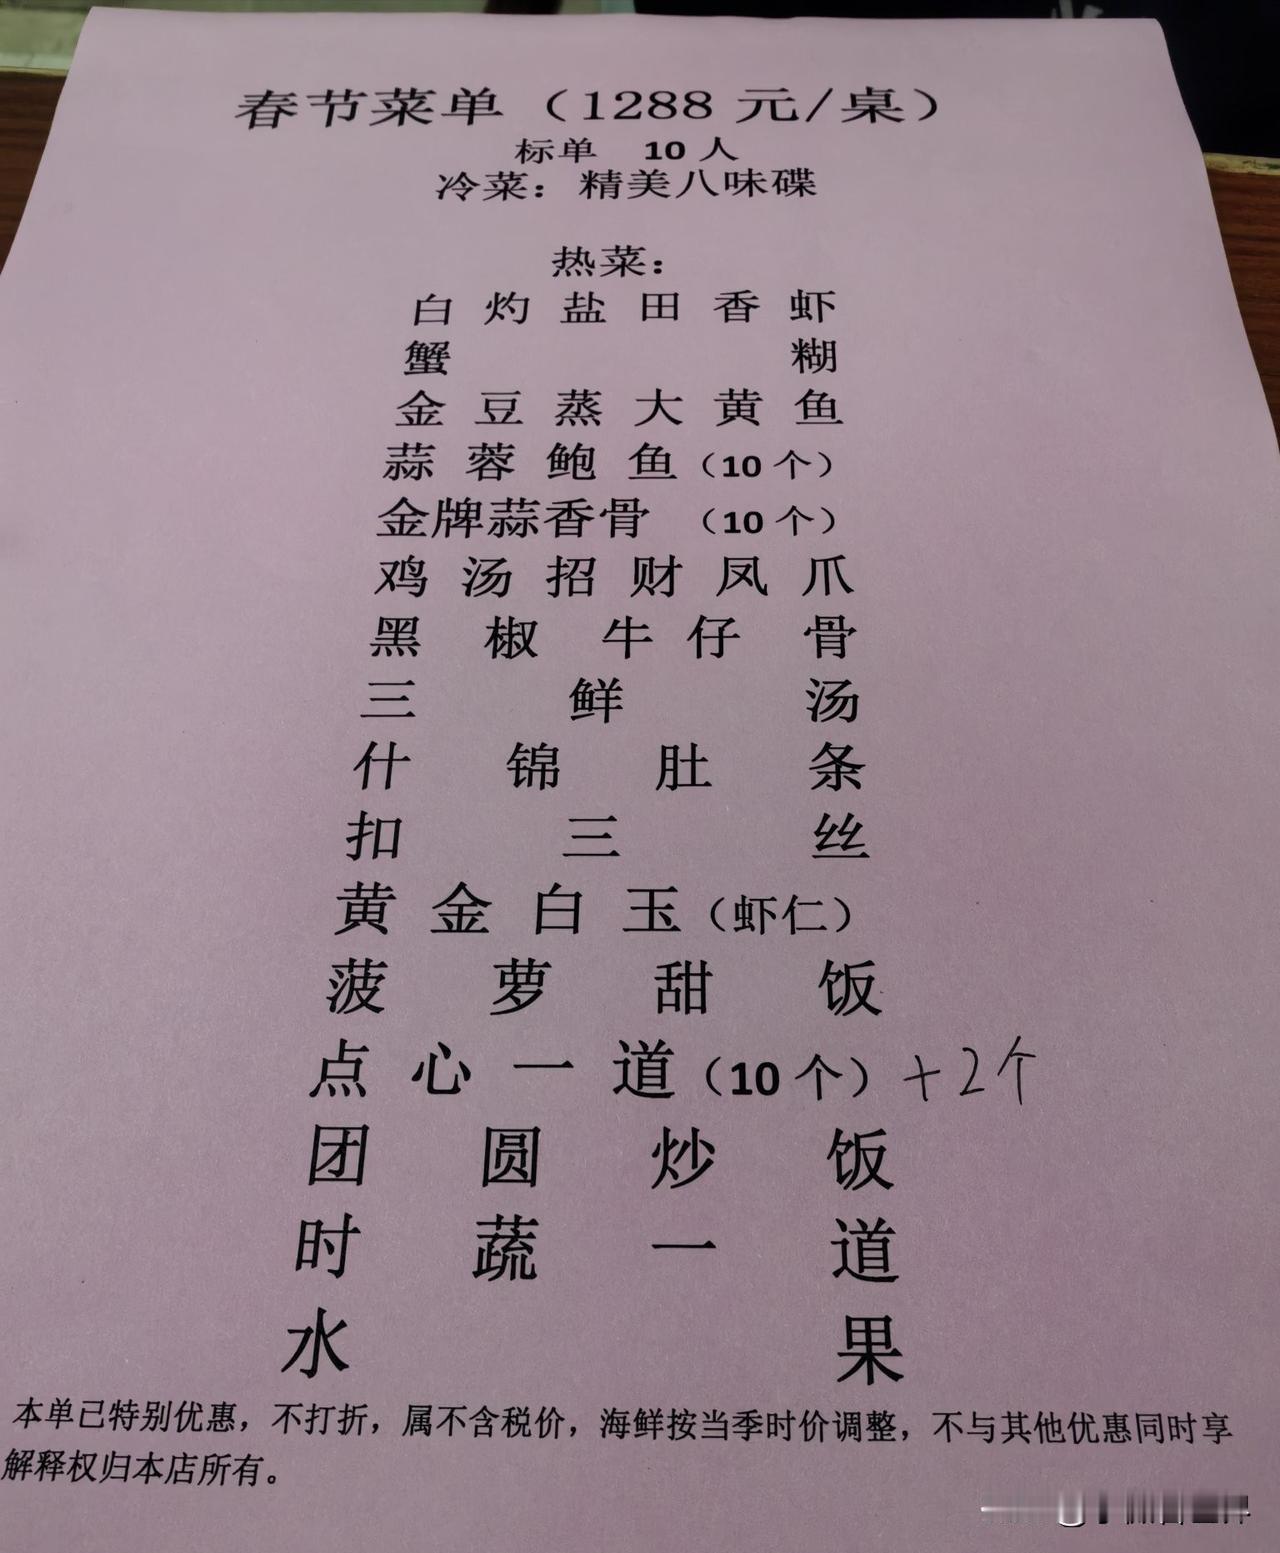 春节菜单（1288 元/桌）
标单 10 人
冷菜：精美八味碟
热菜：
白灼盐田香虾
蟹糊
金豆蒸大黄鱼
蒜蓉鲍鱼（10 个）
金牌蒜香骨 （10 个）
鸡汤招财凤爪
黑椒牛仔骨
三鲜汤
什锦肚条
扣三丝
黄金白玉（虾仁）
菠萝甜饭
点心一道（10 个）+2个
团圆炒饭
时蔬一道
水果
本单已特别优惠，不打折，属不含税价，海鲜按当季时价调整，不与其他优惠同时享
解释权归本店所有。